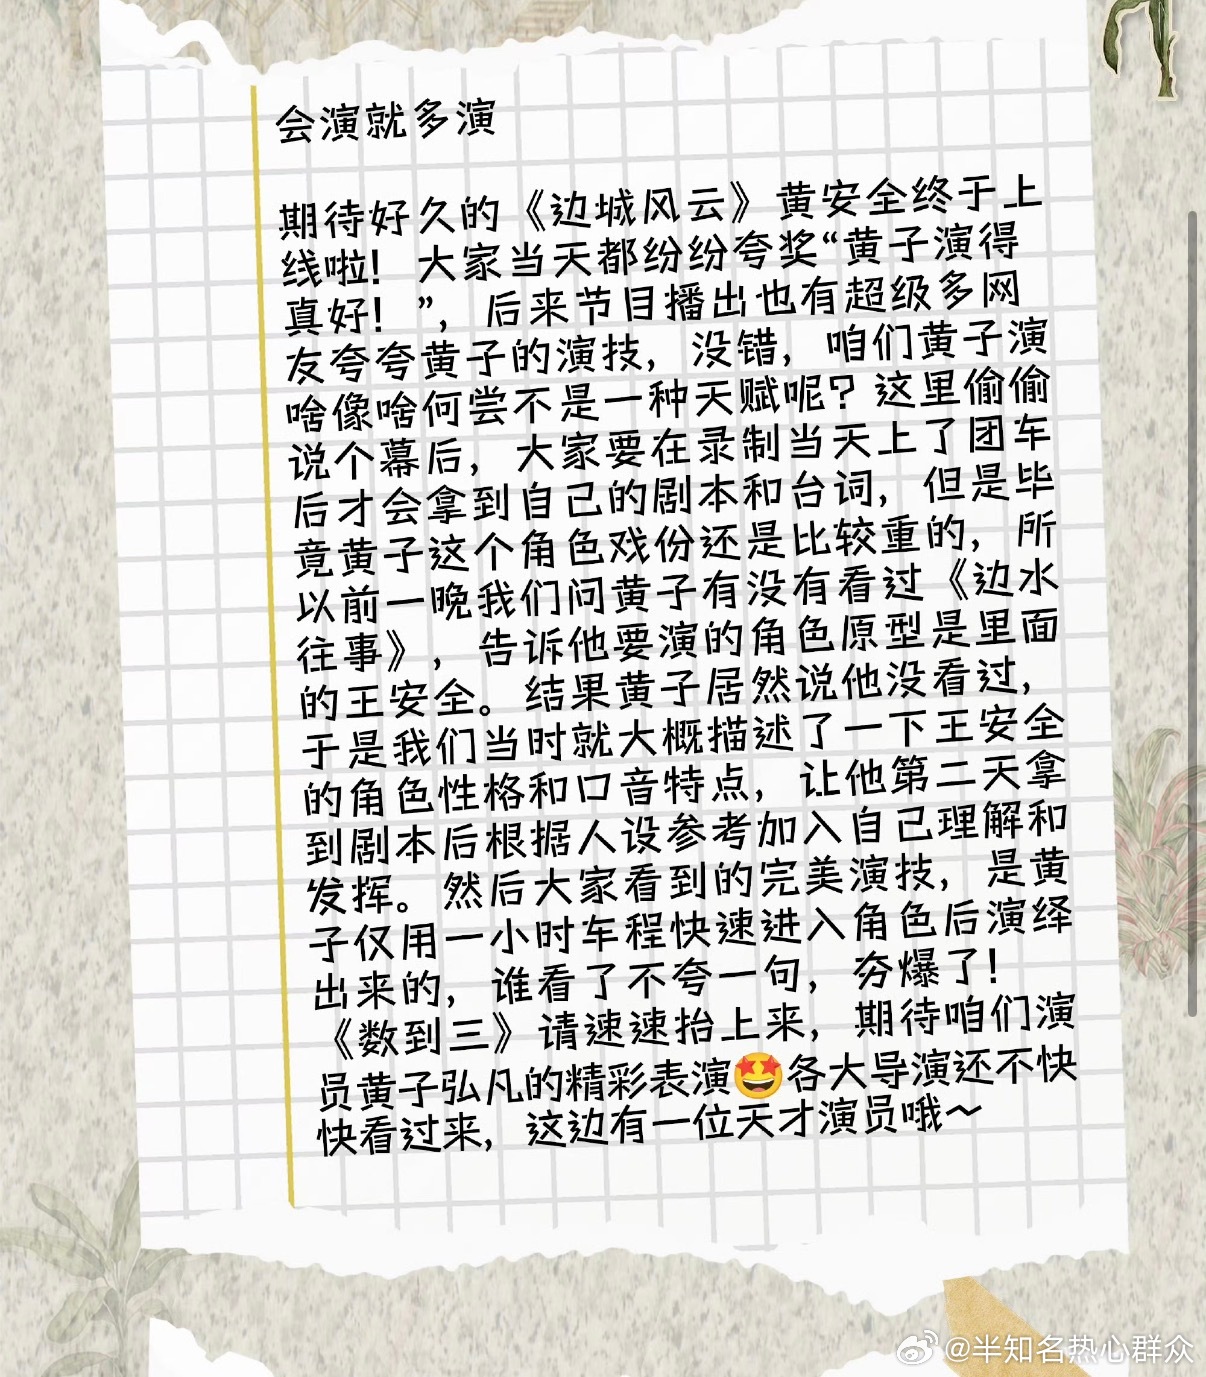 会演就多演
期待好久的《边城风云》黄安全终于上
线啦！大家当天都纷纷夸奖“黄子演得
真好！”，后来节目播出也有超级多网
友夸夸黄子的演技，没错，咱们黄子演
啥像啥何尝不是一种天赋呢？这里偷偷
说个幕后，大家要在录制当天上了团车
后才会拿到自己的剧本和台词，但是毕
竟黄子这个角色戏份还是比较重的，所
以前一晚我们问黄子有没有看过《边水
往事》，告诉他要演的角色原型是里面
的王安全。结果黄子居然说他没看过，
于是我们当时就大概描述了一下王安全
的角色性格和口音特点，让他第二天拿
到剧本后根据人设参考加入自己理解和
发挥。然后大家看到的完美演技，是黄
子仅用一小时车程快速进入角色后演绎
出来的，谁看了不夸一句，夯爆了！
《数到三》请速速抬上来，期待咱们演
员黄子弘凡的精彩表演🤩各大导演还不快
快看过来，这边有一位天才演员哦～
@半知名热心群众